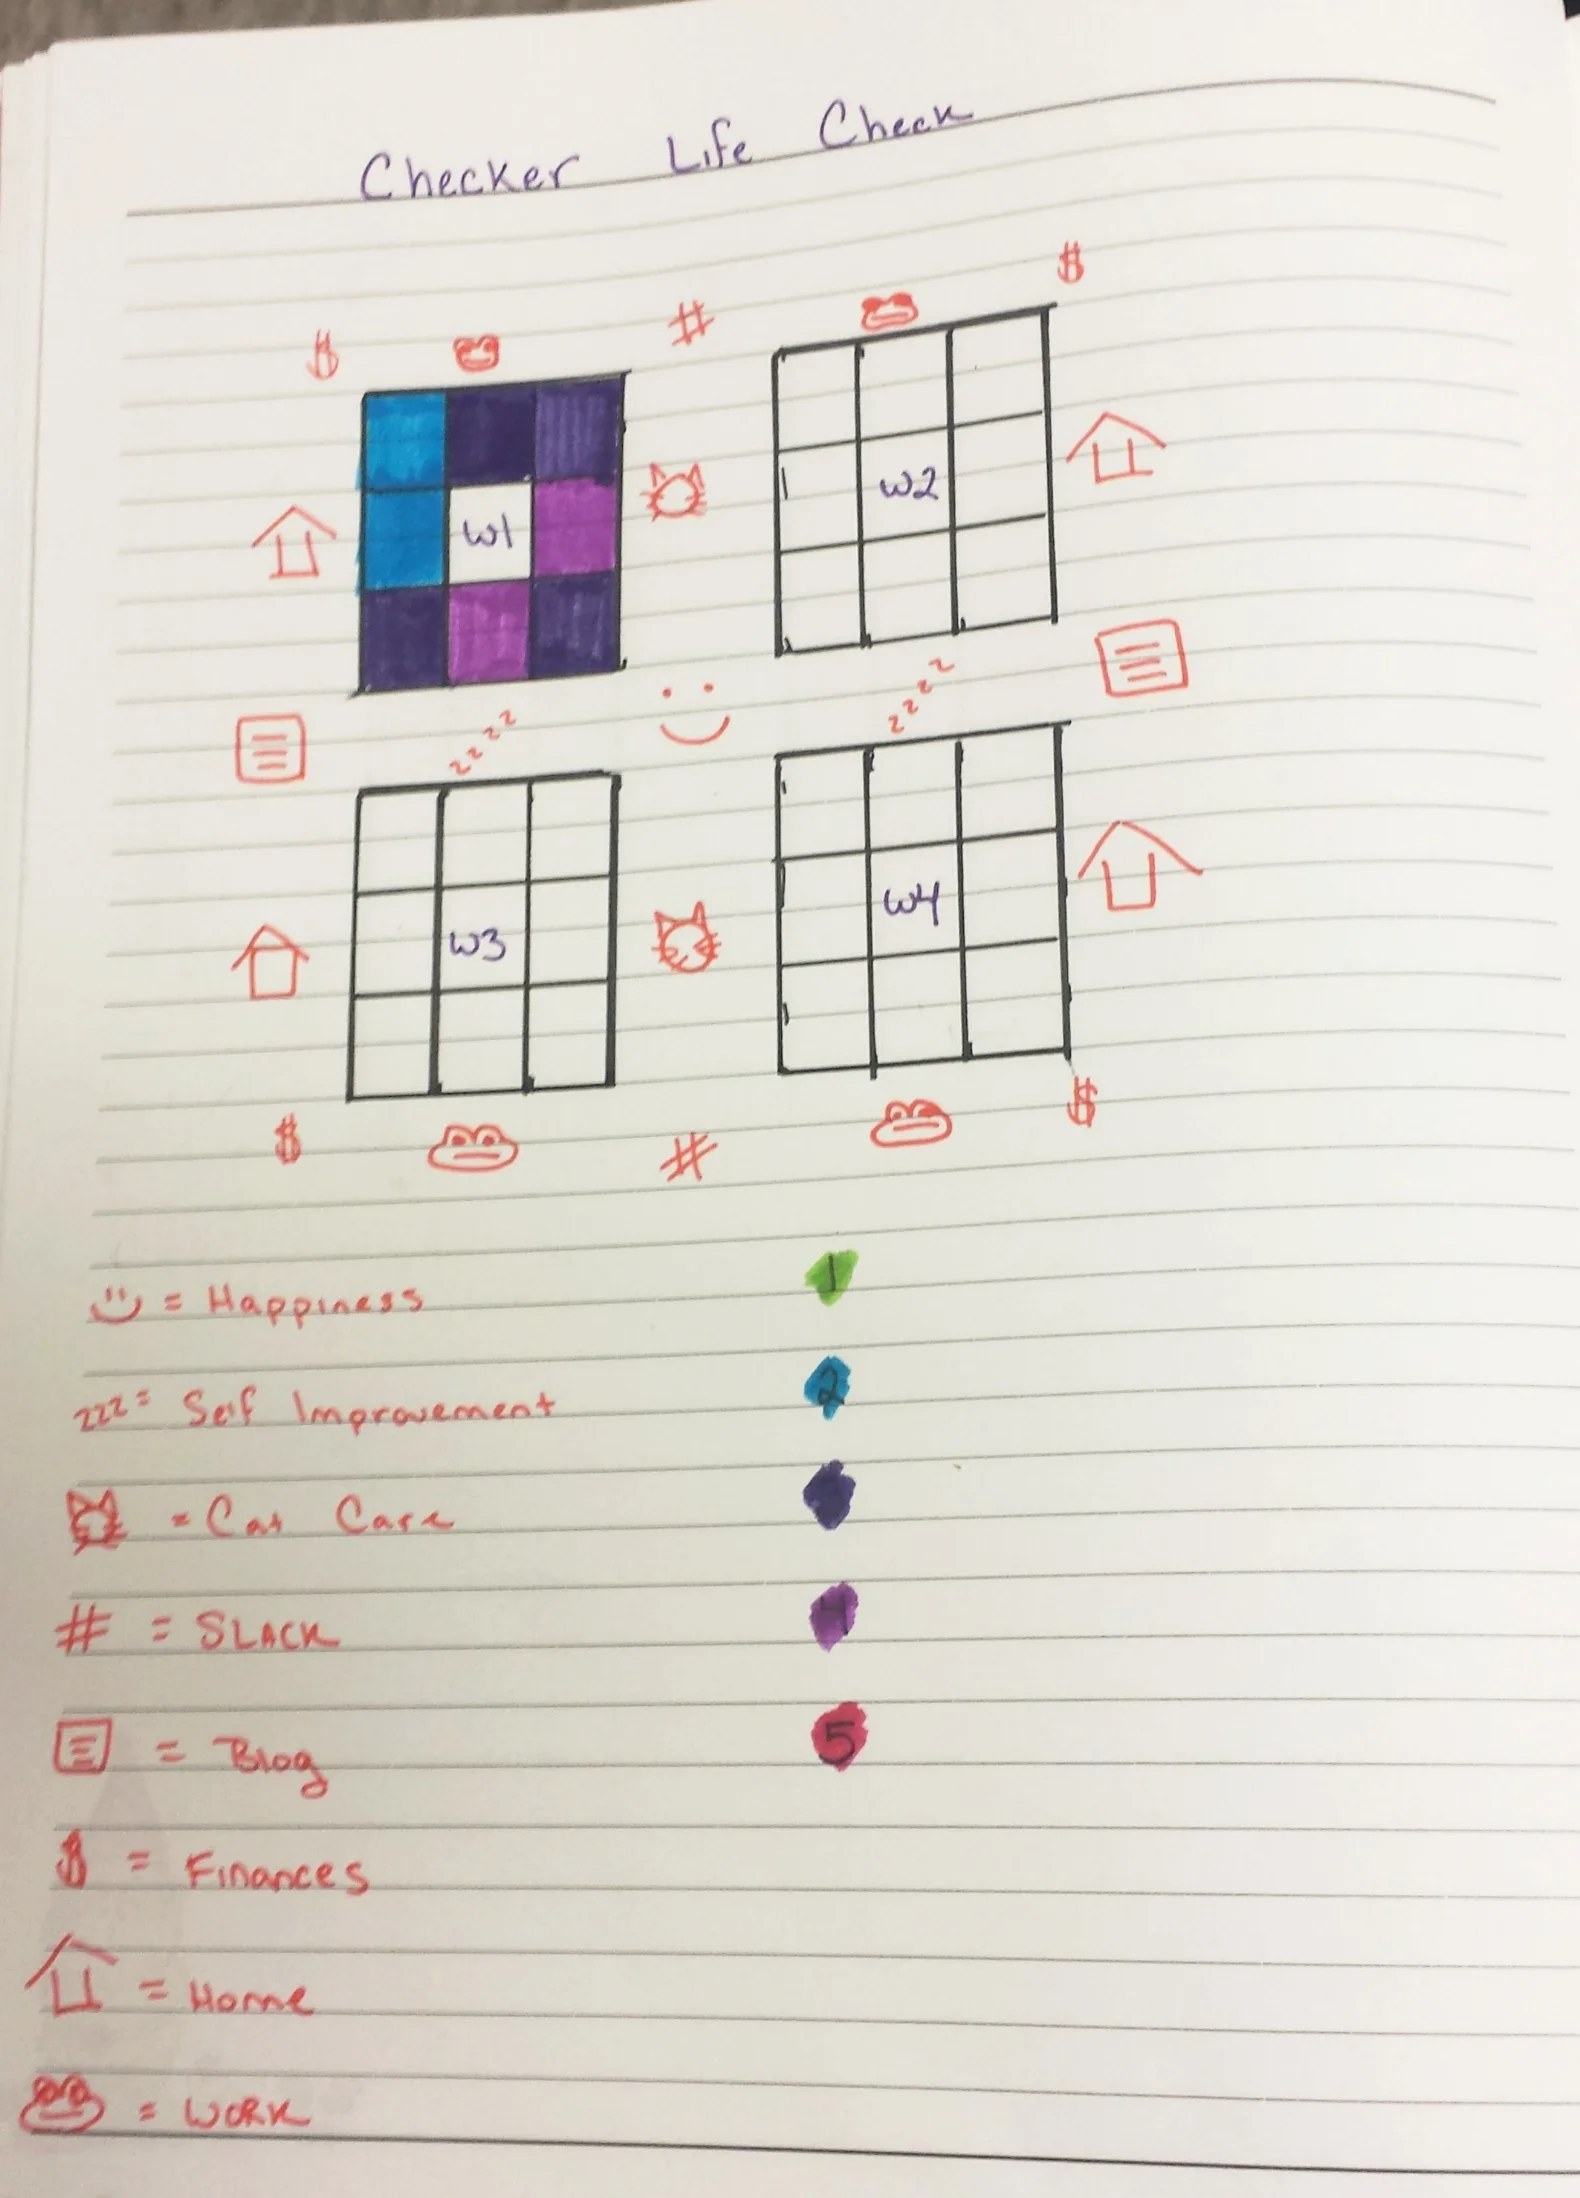 Checker Life Check
$ # $
W1 W2
zzzz zzzz
W3 W4
$ # $
= Happiness 1
zzz = Self Improvement 2
= Cat Care
# = SLACK 4
= Blog 5
$ = Finances
= Home
= WORK